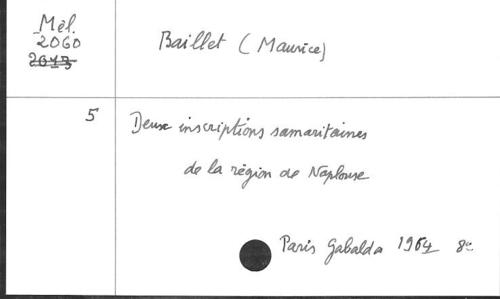 Mél.
2060
2073
Baillet (Maurice)
5
Deux inscriptions samaritaines
de la région de Naplouse
Paris Gabalda 1964 8º